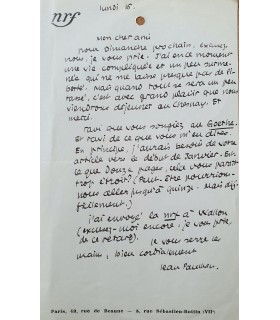 nrf
lundi 15.
Mon cher ami
pour Dimanche prochain, excusez-
nous, je vous prie. J'ai en ce moment
une vie compliquée et un peu surme-
née qui ne me laisse presque pas de li-
berté. Mais quand tout se sera un peu
tassé, c'est avec grand plaisir que nous
viendrons déjeuner au Chesnay. Et
merci.
Ravi que vous songiez au Goethe.
Et ravi de ce que vous m'en dites.
En principe, j'aurais besoin de votre
article vers le début de Janvier. Est-
ce que Douze pages, cela vous paraît
trop étroit? (Peut-être pourrions-
nous aller jusqu'à quinze. Mais dif-
ficilement.)
J'ai envoyé la nrf à
(excusez-moi encore, je vous prie,
de ce retard).
Je vous serre la
main, bien cordialement
Jean Paulhan.
Paris, 43, rue de Beaune — 5, rue Sébastien-Bottin (VIIe)